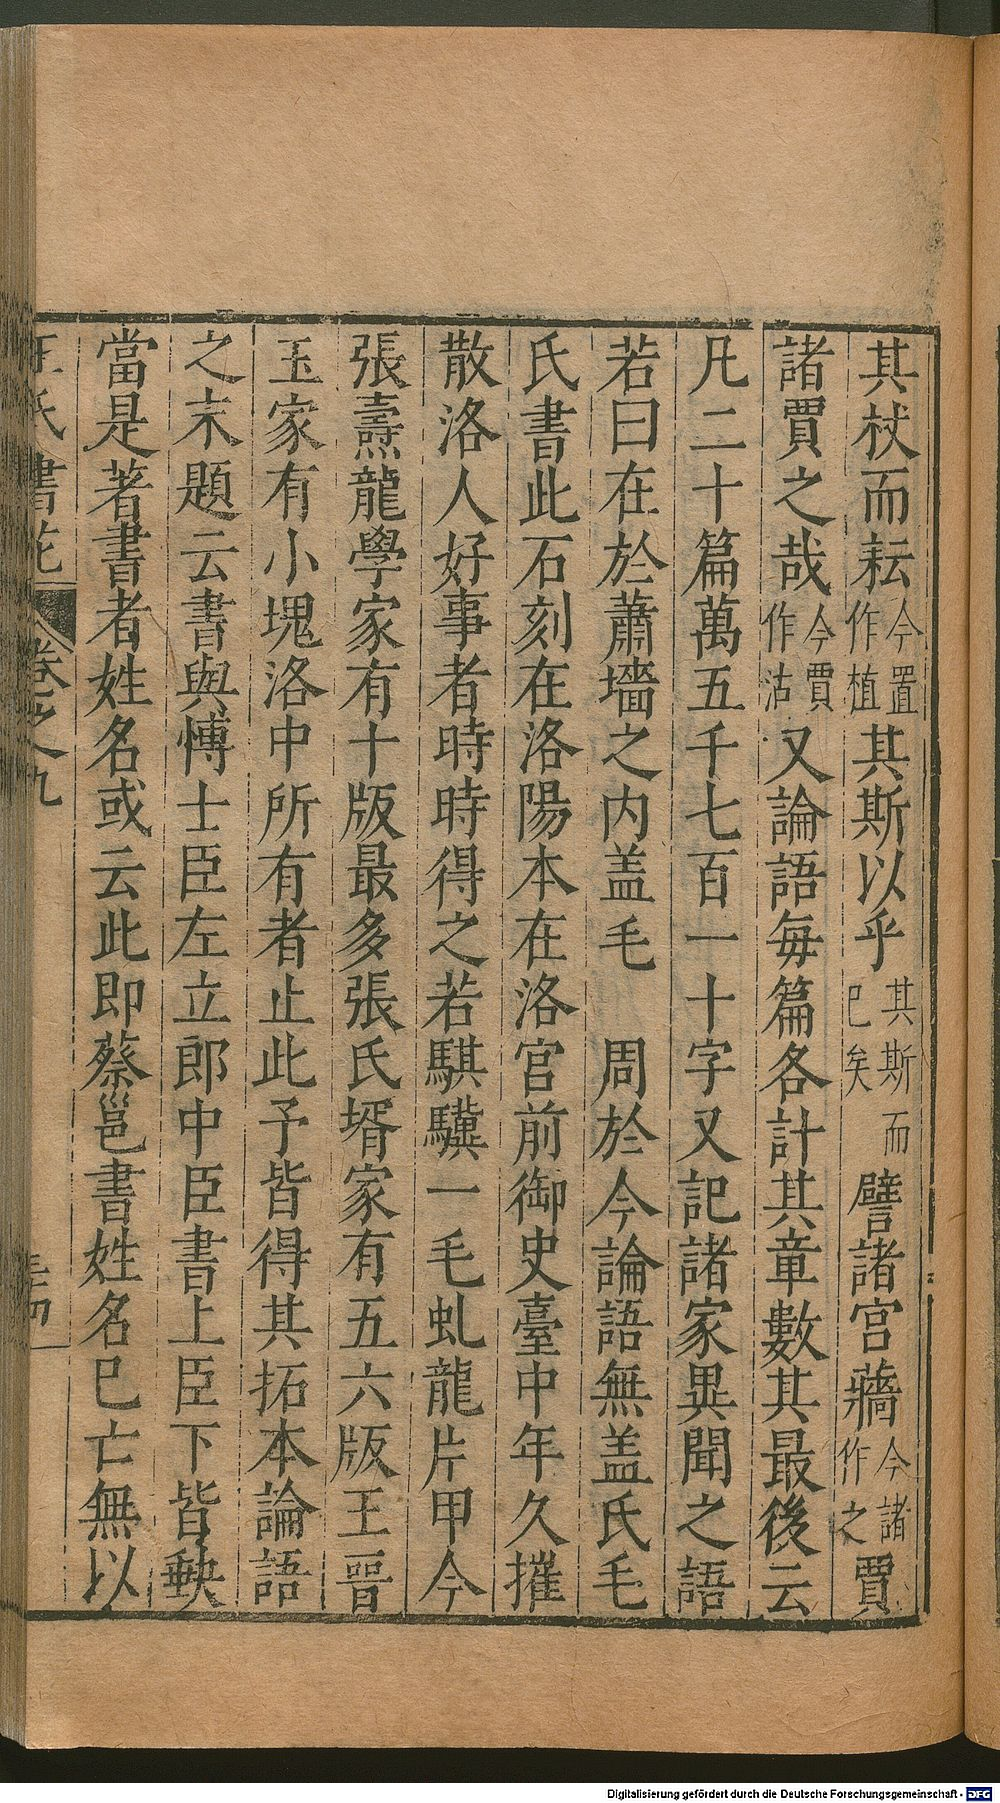 其杖而耘今置作植其斯以乎其斯而已矣譬諸宮蘠今諸作之賈
諸賈之哉今賈作沽又論語每篇各計其章數其最後云
凡二十篇萬五千七百一十字又記諸家異聞之語
若曰在於蕭墻之内盖毛　周於今論語無盖氏毛
氏書此石刻在洛陽本在洛宮前御史臺中年久摧
散洛人好事者時時得之若騏驥一毛虬龍片甲今
張燾龍學家有十版最多張氏壻家有五六版王晋
玉家有小塊洛中所有者止此予皆得其拓本論語
之末題云書與博士臣左立郎中臣書上臣下皆缺
當是著書者姓名或云此即蔡邕書姓名已亡無以
卷之九
Digitalisierung gefördert durch die Deutsche Forschungsgemeinschaft - DFG